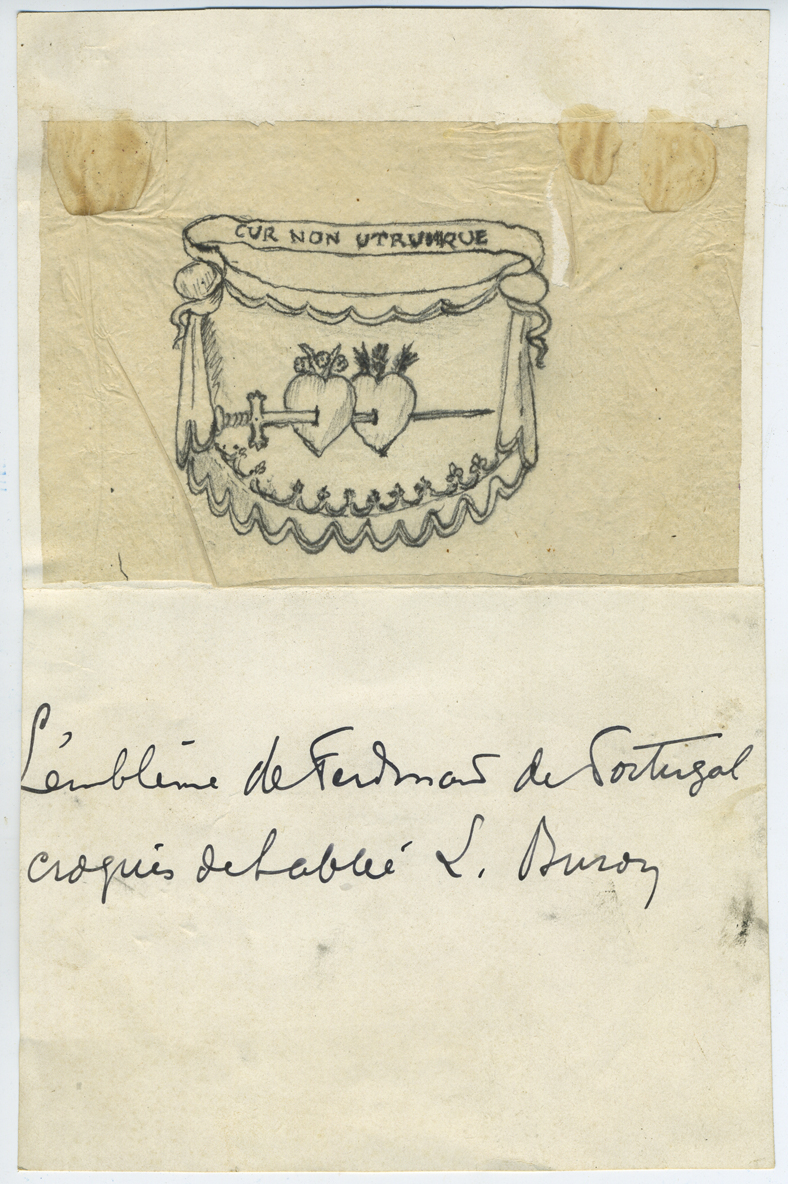 CUR NON UTRUMQUE
L'emblème de Ferdinand de Portugal
croquis de l'abbé L. Buron